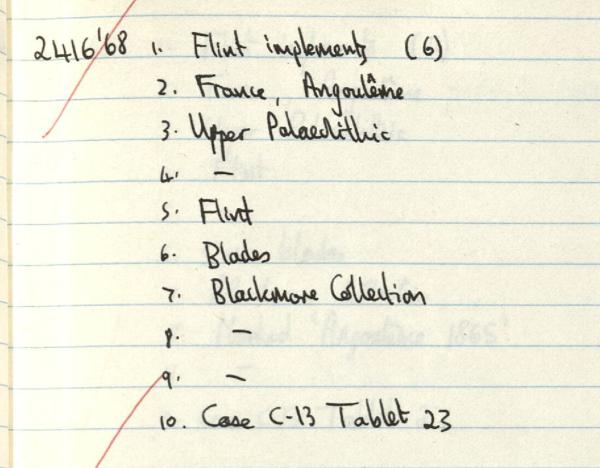 2416'68 1. Flint implements (6)
2. France, Angoulême
3. Upper Palaeolithic
4. –
5. Flint
6. Blades
7. Blackmore Collection
8. –
9. –
10. Case C-13 Tablet 23